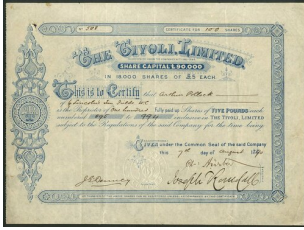 CERTIFICATE FOR 100 SHARES
THE TIVOLI, LIMITED.
SHARE CAPITAL £90,000
IN 18000 SHARES OF £5 EACH.
This is to Certify that Arthur Pollock
of Lincolns Inn Fields WC
is the Proprietor of One hundred Fully paid up Shares of FIVE POUNDS each
numbered 895 to 994 inclusive in THE TIVOLI LIMITED
subject to the Regulations of the said Company for the time being
GIVEN under the Common Seal of the said Company
this 7th day of August 1890